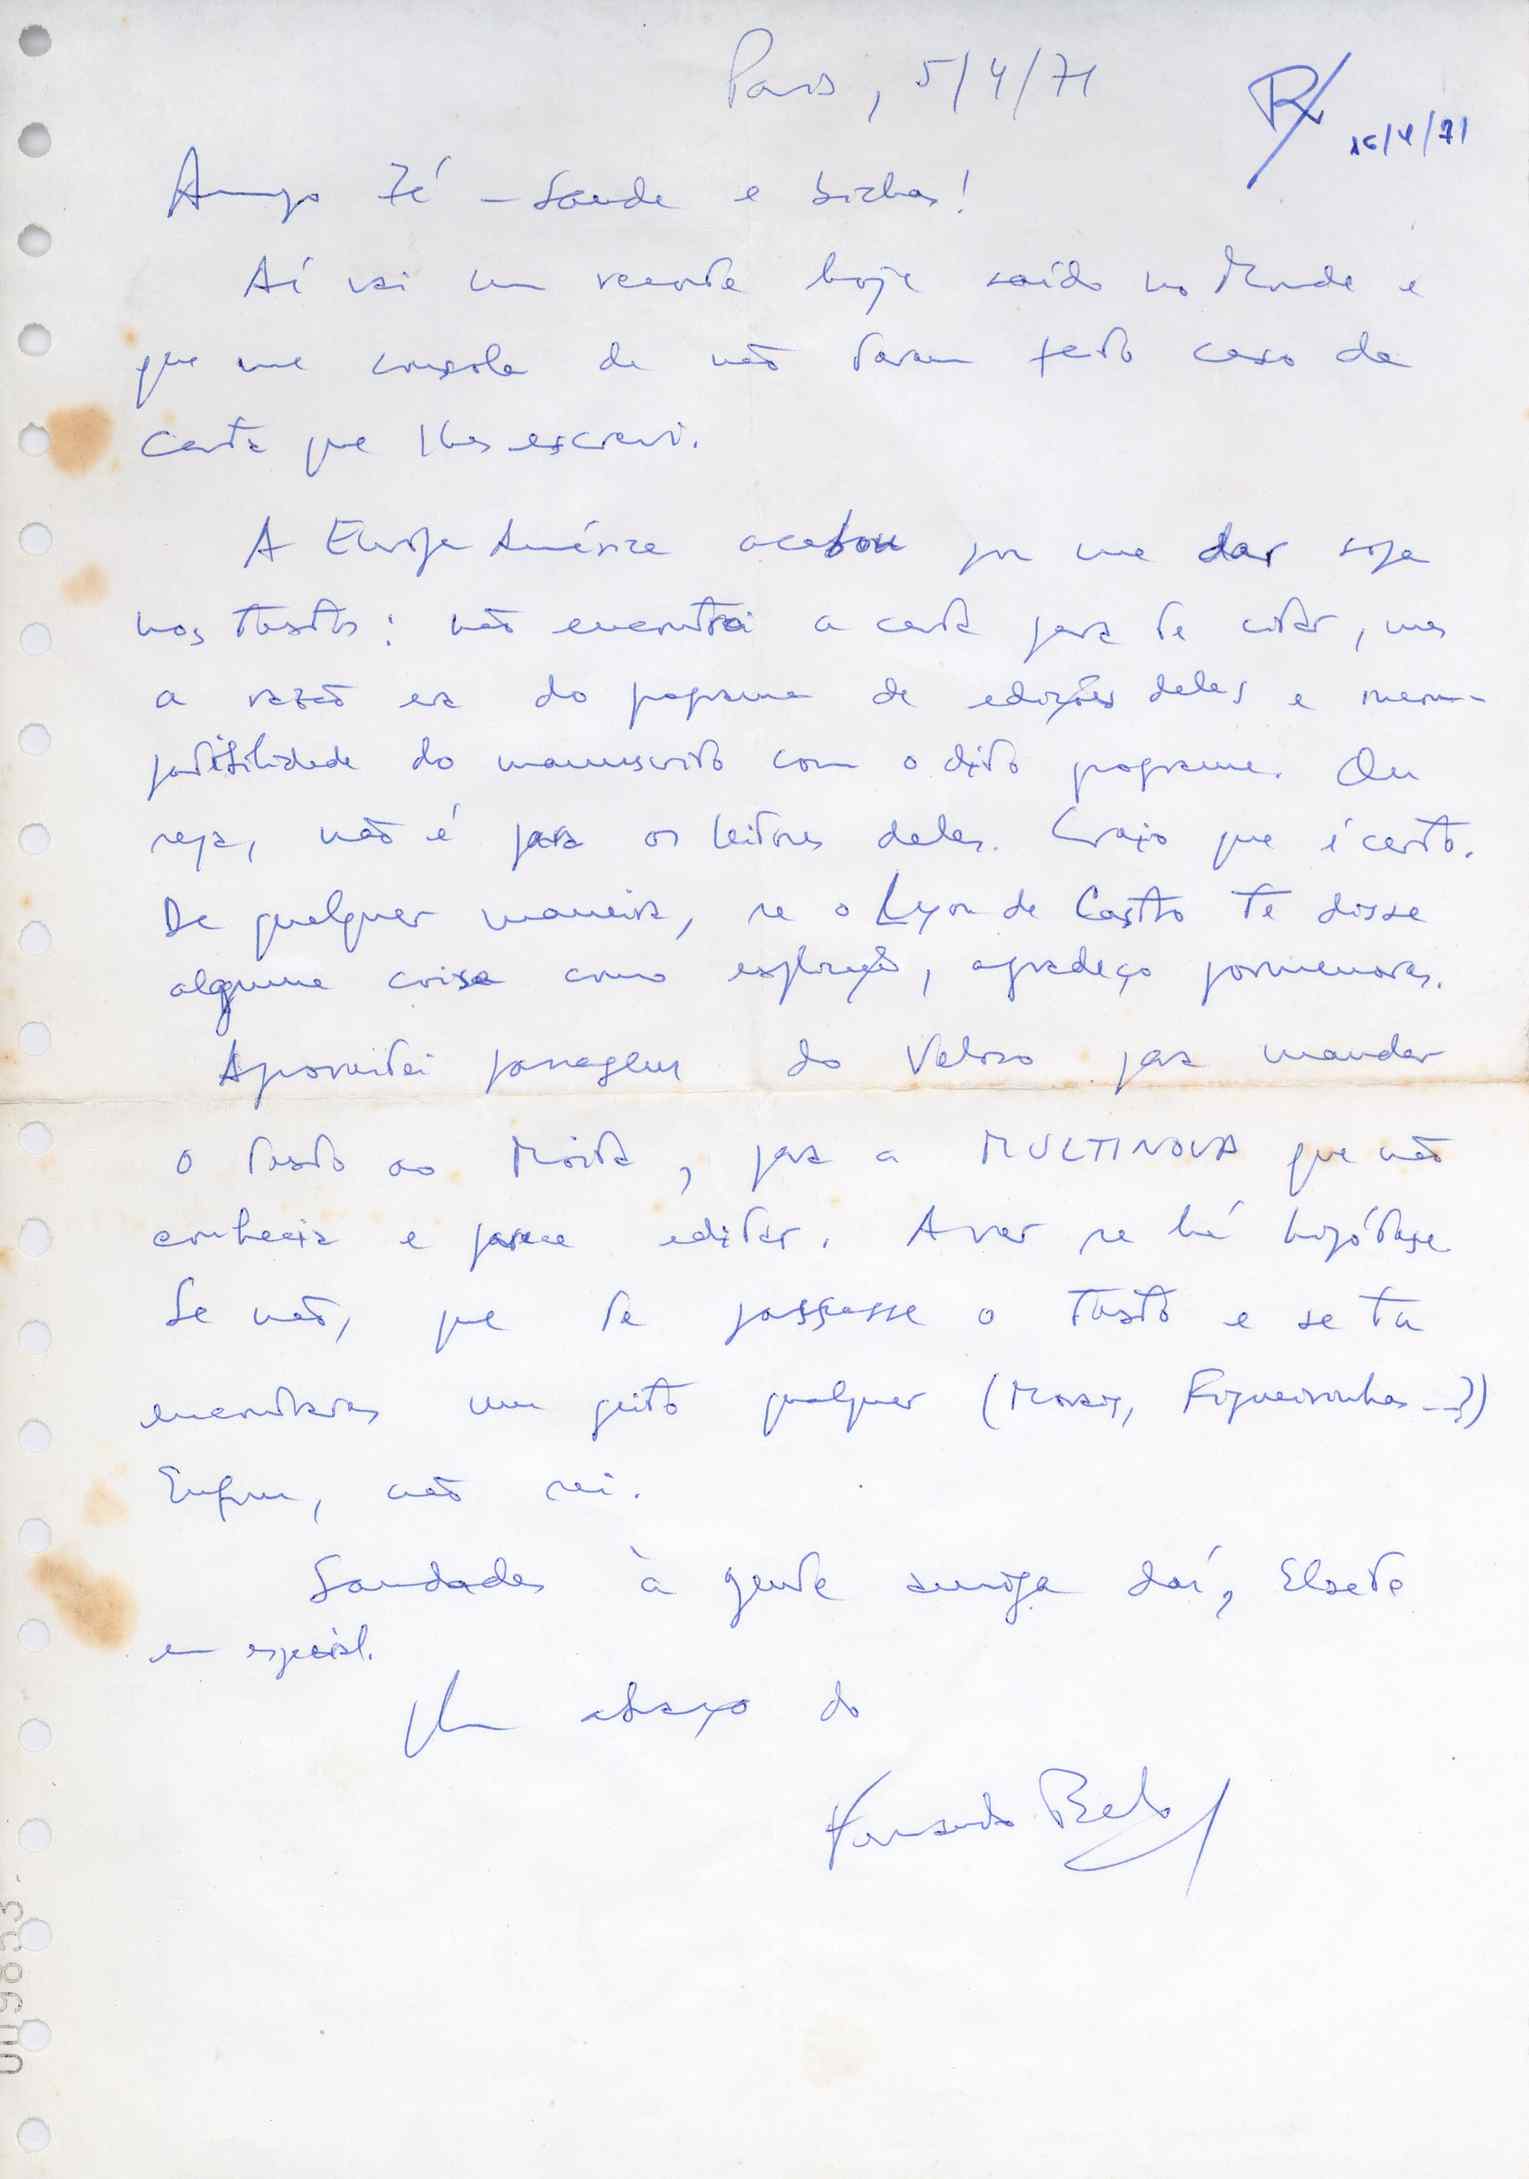 Paris, 5/4/71
R/ 16/4/71
Amigo Zé – Saúde e bichas!
Aí vai um recorte hoje saído no Monde e
que me consola de não terem feito caso da
carta que lhes escrevi.
A Europa América acabou por me dar sopa
nos textos: não encontrei a carta para te citar, mas
a razão era do programa de edições deles e incom-
patibilidade do manuscrito com o dito programa. Ou
seja, não é para os leitores deles. Creio que é certo.
De qualquer maneira, se o Lyon de Castro te disse
alguma coisa como explicação, agradeço pormenores.
Aproveitei passagem do Veloso para mandar
o texto ao Moita, para a MULTINOVA que não
conhecia e parece editar. A ver se há hipótese
Se não, que te passasse o texto e se tu
encontrares um geito qualquer (Morais, Figueirinhas ...?)
Enfim, não sei.
Saudades à gente amiga daí, Elsete
em especial.
Um abraço do
Fernando Belo
009853